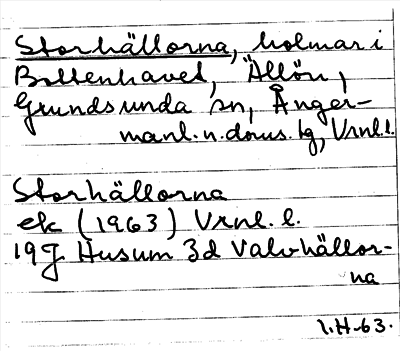 Storhällorna, holmar i
Bottenhavet, Ällön,
Grundsunda sn, Ånger-
manl. n. doms. tg, Vrnl. l.
Storhällorna
ek (1963) Vrnl. l.
19J Husum 3d Valvhällor-
na
I.H-63.